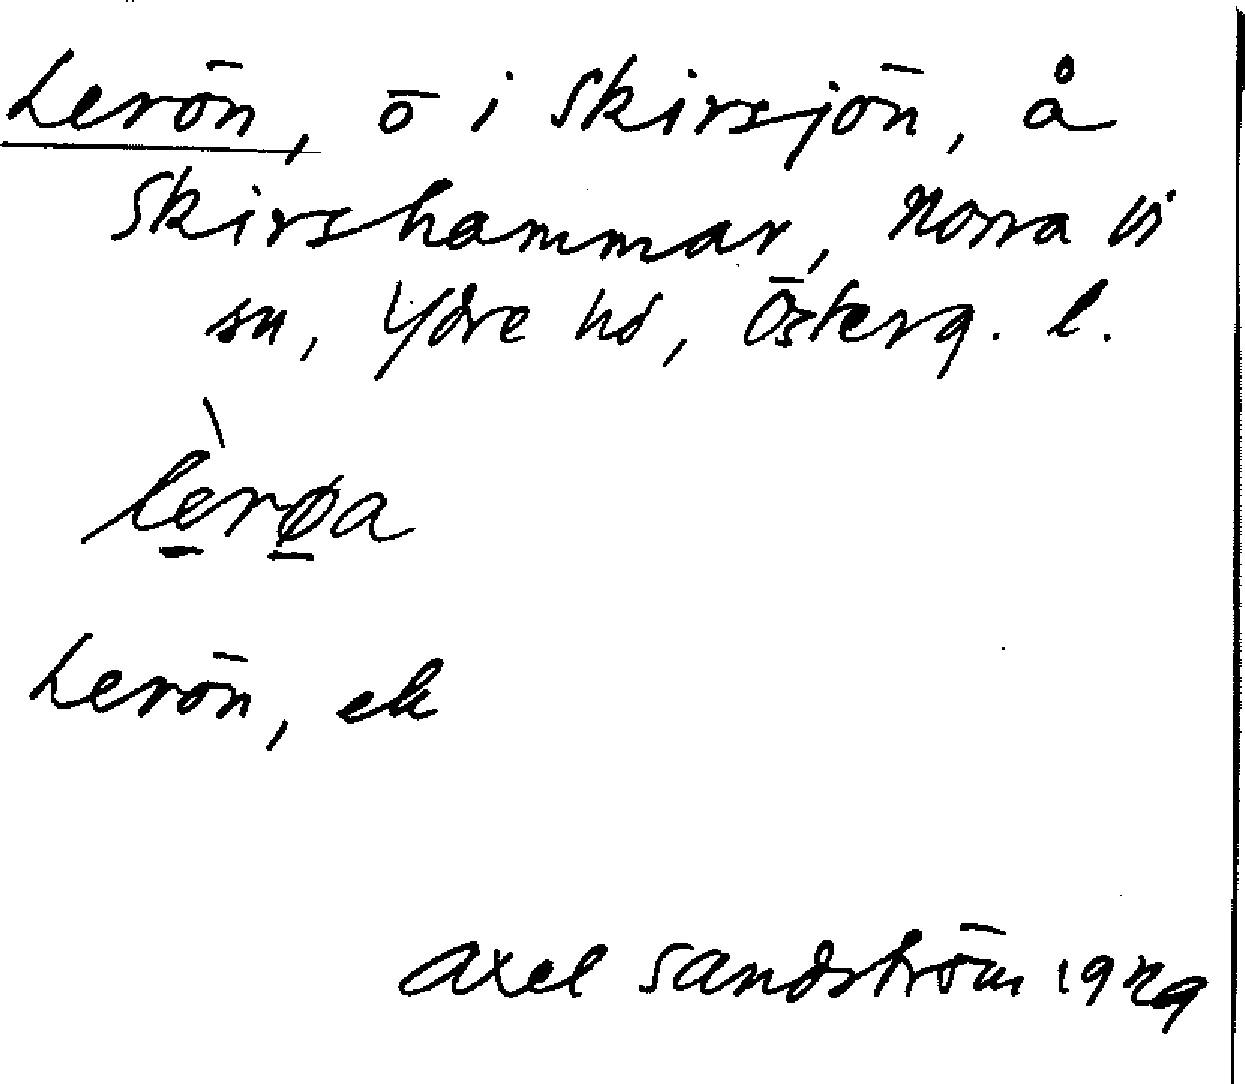 Lerön, ö i Skirsjön, å
Skirshammar, Norra Vi
sn, Ydre hd, Österg. l.
lèrøa
Lerön, ek
Axel Sandström 1929